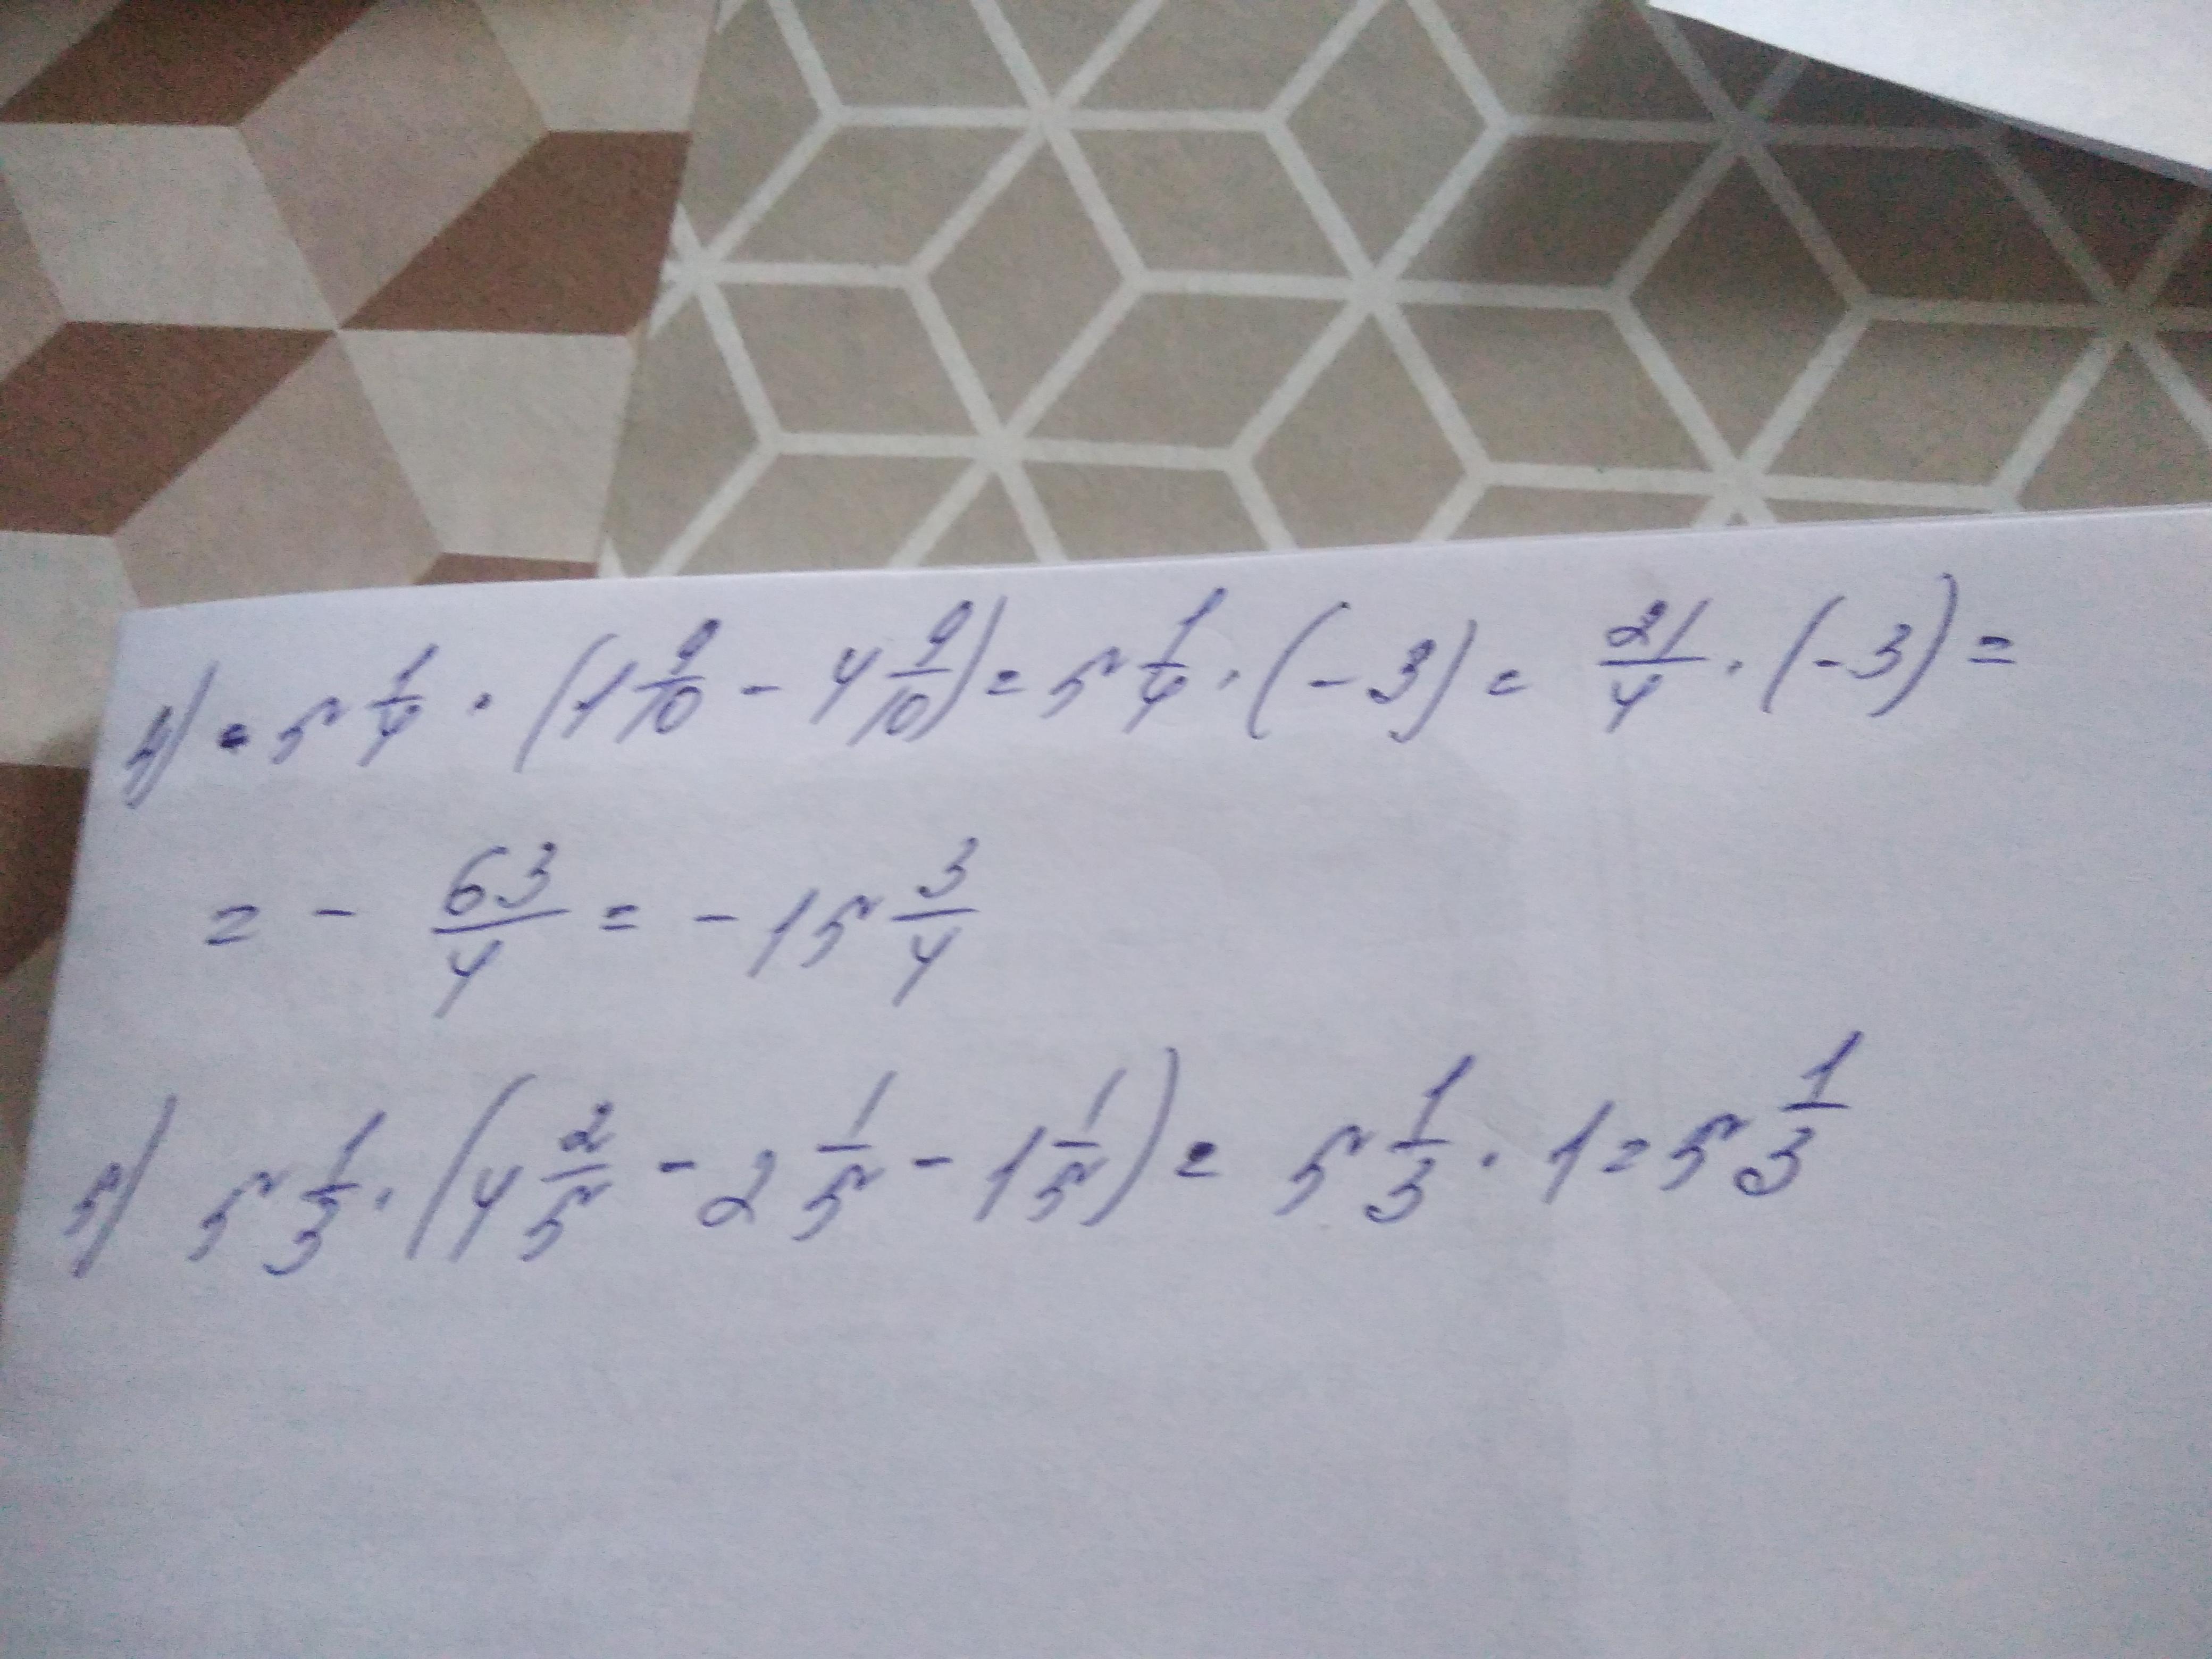 4) = 5 1/4 · (1 9/10 - 4 9/10) = 5 1/4 · (-3) = 21/4 · (-3) =
= - 63/4 = -15 3/4
5) 5 1/3 · (4 2/5 - 2 1/5 - 1 1/5) = 5 1/3 · 1 = 5 1/3